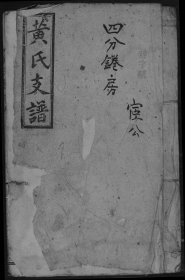 黃氏支譜
四分錈房
宦公